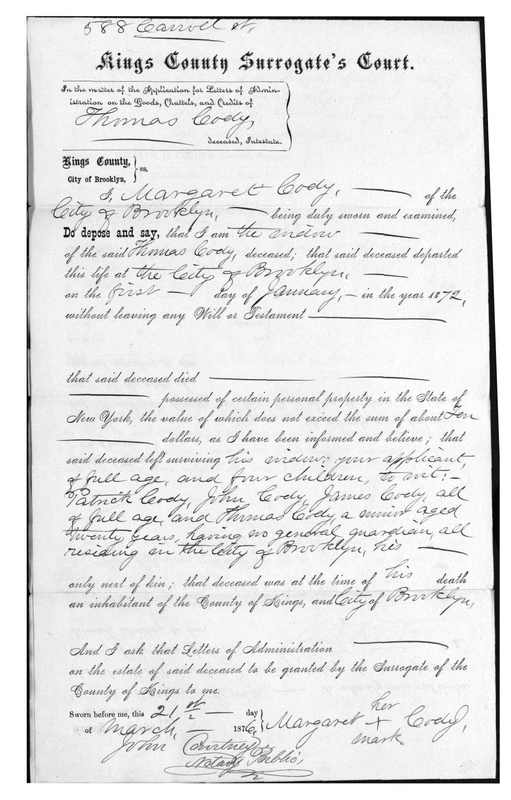 588 Carroll St.
Kings County Surrogate's Court.
In the matter of the Application for Letters of Admin-
istration on the Goods, Chattels, and Credits of
Thomas Cody,
deceased, Intestate.
Kings County, } ss.
City of Brooklyn,
I, Margaret Cody, of the
City of Brooklyn, being duly sworn and examined,
Do depose and say, that I am the widow
of the said Thomas Cody, deceased; that said deceased departed
this life at the City of Brooklyn,
on the first day of January, in the year 1872,
without leaving any Will or Testament
that said deceased died
possessed of certain personal property in the State of
New York, the value of which does not exceed the sum of about Ten
dollars, as I have been informed and believe; that
said deceased left surviving his widow, your applicant,
of full age, and four children, to wit:-
Patrick Cody, John Cody, James Cody, all
of full age, and Thomas Cody, a minor aged
twenty years, having no general guardian, all
residing in the City of Brooklyn, his
only next of kin; that deceased was at the time of his death
an inhabitant of the County of Kings, and City of Brooklyn,
And I ask that Letters of Administration
on the estate of said deceased to be granted by the Surrogate of the
County of Kings to me.
Sworn before me, this 21st day
of March, 1876, } Margaret her + mark Cody,
John Courtney
Notary Public,